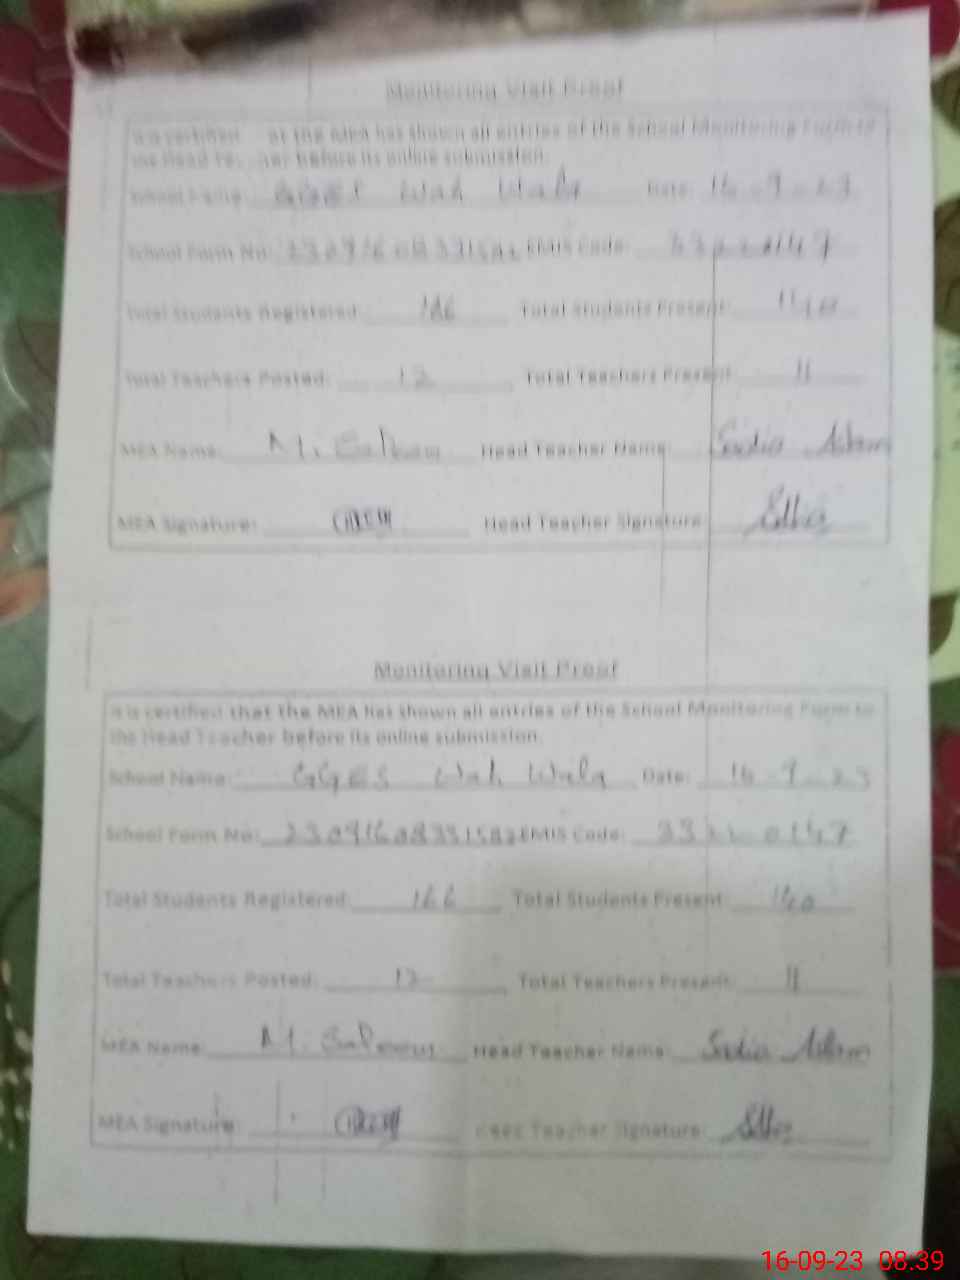 Monitoring Visit Proof
It is certified at the MEA has shown all entries of the School Monitoring Form to
the Head before its online submission.
School Name: GGES Wah Wala Date: 16-9-23
School Form No: EMIS Code:
Total Students Registered: Total Students Present: 140
Total Teachers Posted: 12 Total Teachers Present: 11
MEA Name: M. Head Teacher Name: Sadia Aslam
MEA Signature: Head Teacher Signature:
Monitoring Visit Proof
It is certified that the MEA has shown all entries of the School Monitoring Form to
the Head Teacher before its online submission.
School Name: GGES Wah Wala Date: 16-9-23
School Form No: EMIS Code:
Total Students Registered: 166 Total Students Present: 140
Total Teachers Posted: 12 Total Teachers Present: 11
MEA Name: M. Saleem Head Teacher Name: Sadia Aslam
MEA Signature: Head Teacher Signature:
16-09-23 08:39